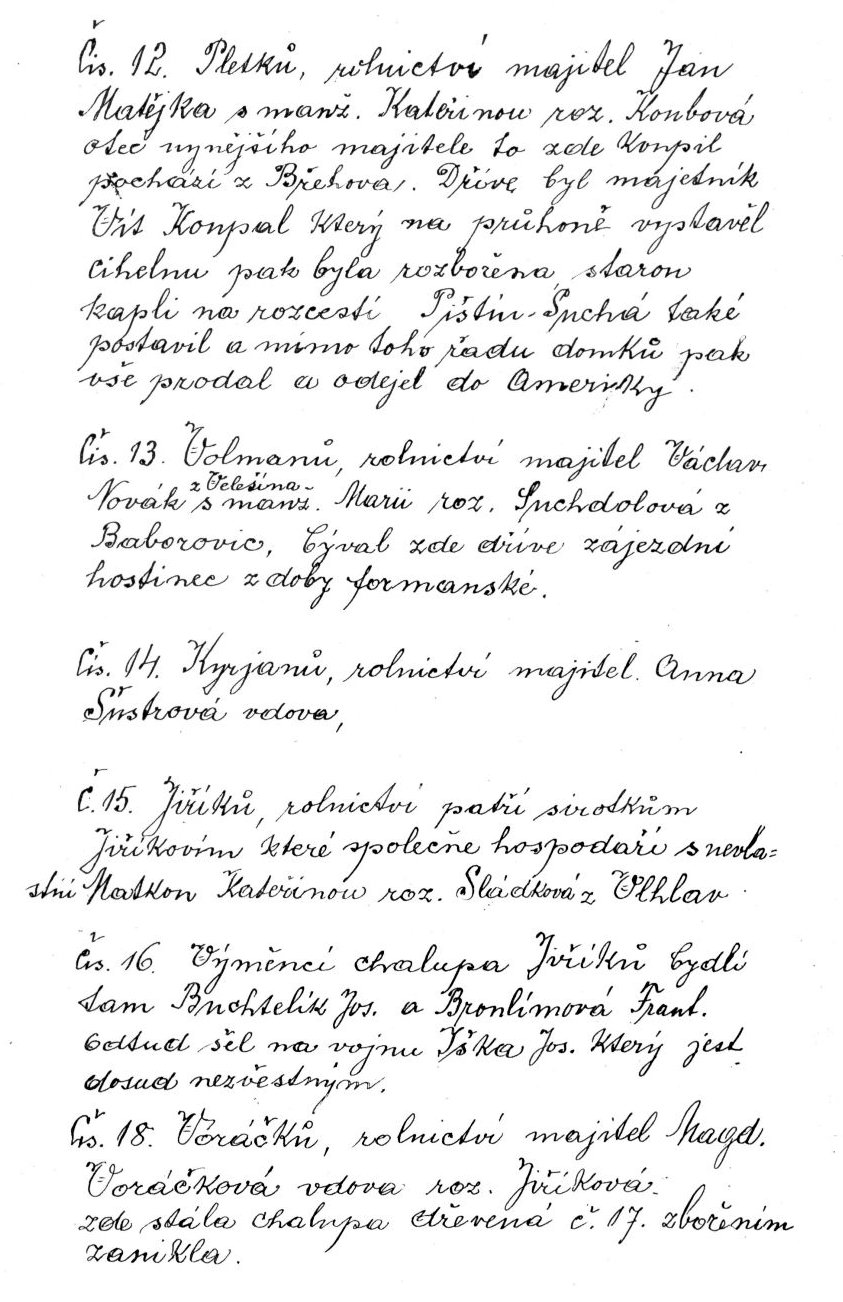 Čis. 12. Pletků, rolnictví majitel Jan
Matějka s manž. Kateřinou roz. Koubová
otec nynějšího majitele to zde koupil
pochází z Břehova. Dříve byl majetník
Vít Koupal který na průhoně vystavěl
cihelnu pak byla rozbořena, starou
kapli na rozcestí Pištín-Suchá také
postavil a mimo toho řadu domků pak
vše prodal a odejel do Ameriky.
Čis. 13. Volmanů, rolnictví majitel Václav
z Velešína
Novák s manž. Marii roz. Suchdolová z
Baborovic, býval zde dříve zájezdní
hostinec z doby formanské.
Čis. 14. Kyrjanů, rolnictví majitel. Anna
Šůstrová vdova,
Č. 15. Jiříků, rolnictví patří sirotkům
Jiříkovím které společně hospodaří s nevla=
stní Matkou Kateřinou roz. Sládková z Vlhlav.
Čis. 16. Výměnčí chalupa Jiříků bydlí
tam Buchtelík Jos. a Broulímová Frant.
odtud šel na vojnu Iška Jos. který jest
dosud nezvěstným.
Čis. 18. Voráčků, rolnictví majitel Magd.
Voráčková vdova roz. Jiříková.
zde stála chalupa dřevená č. 17. zbořením
zanikla.